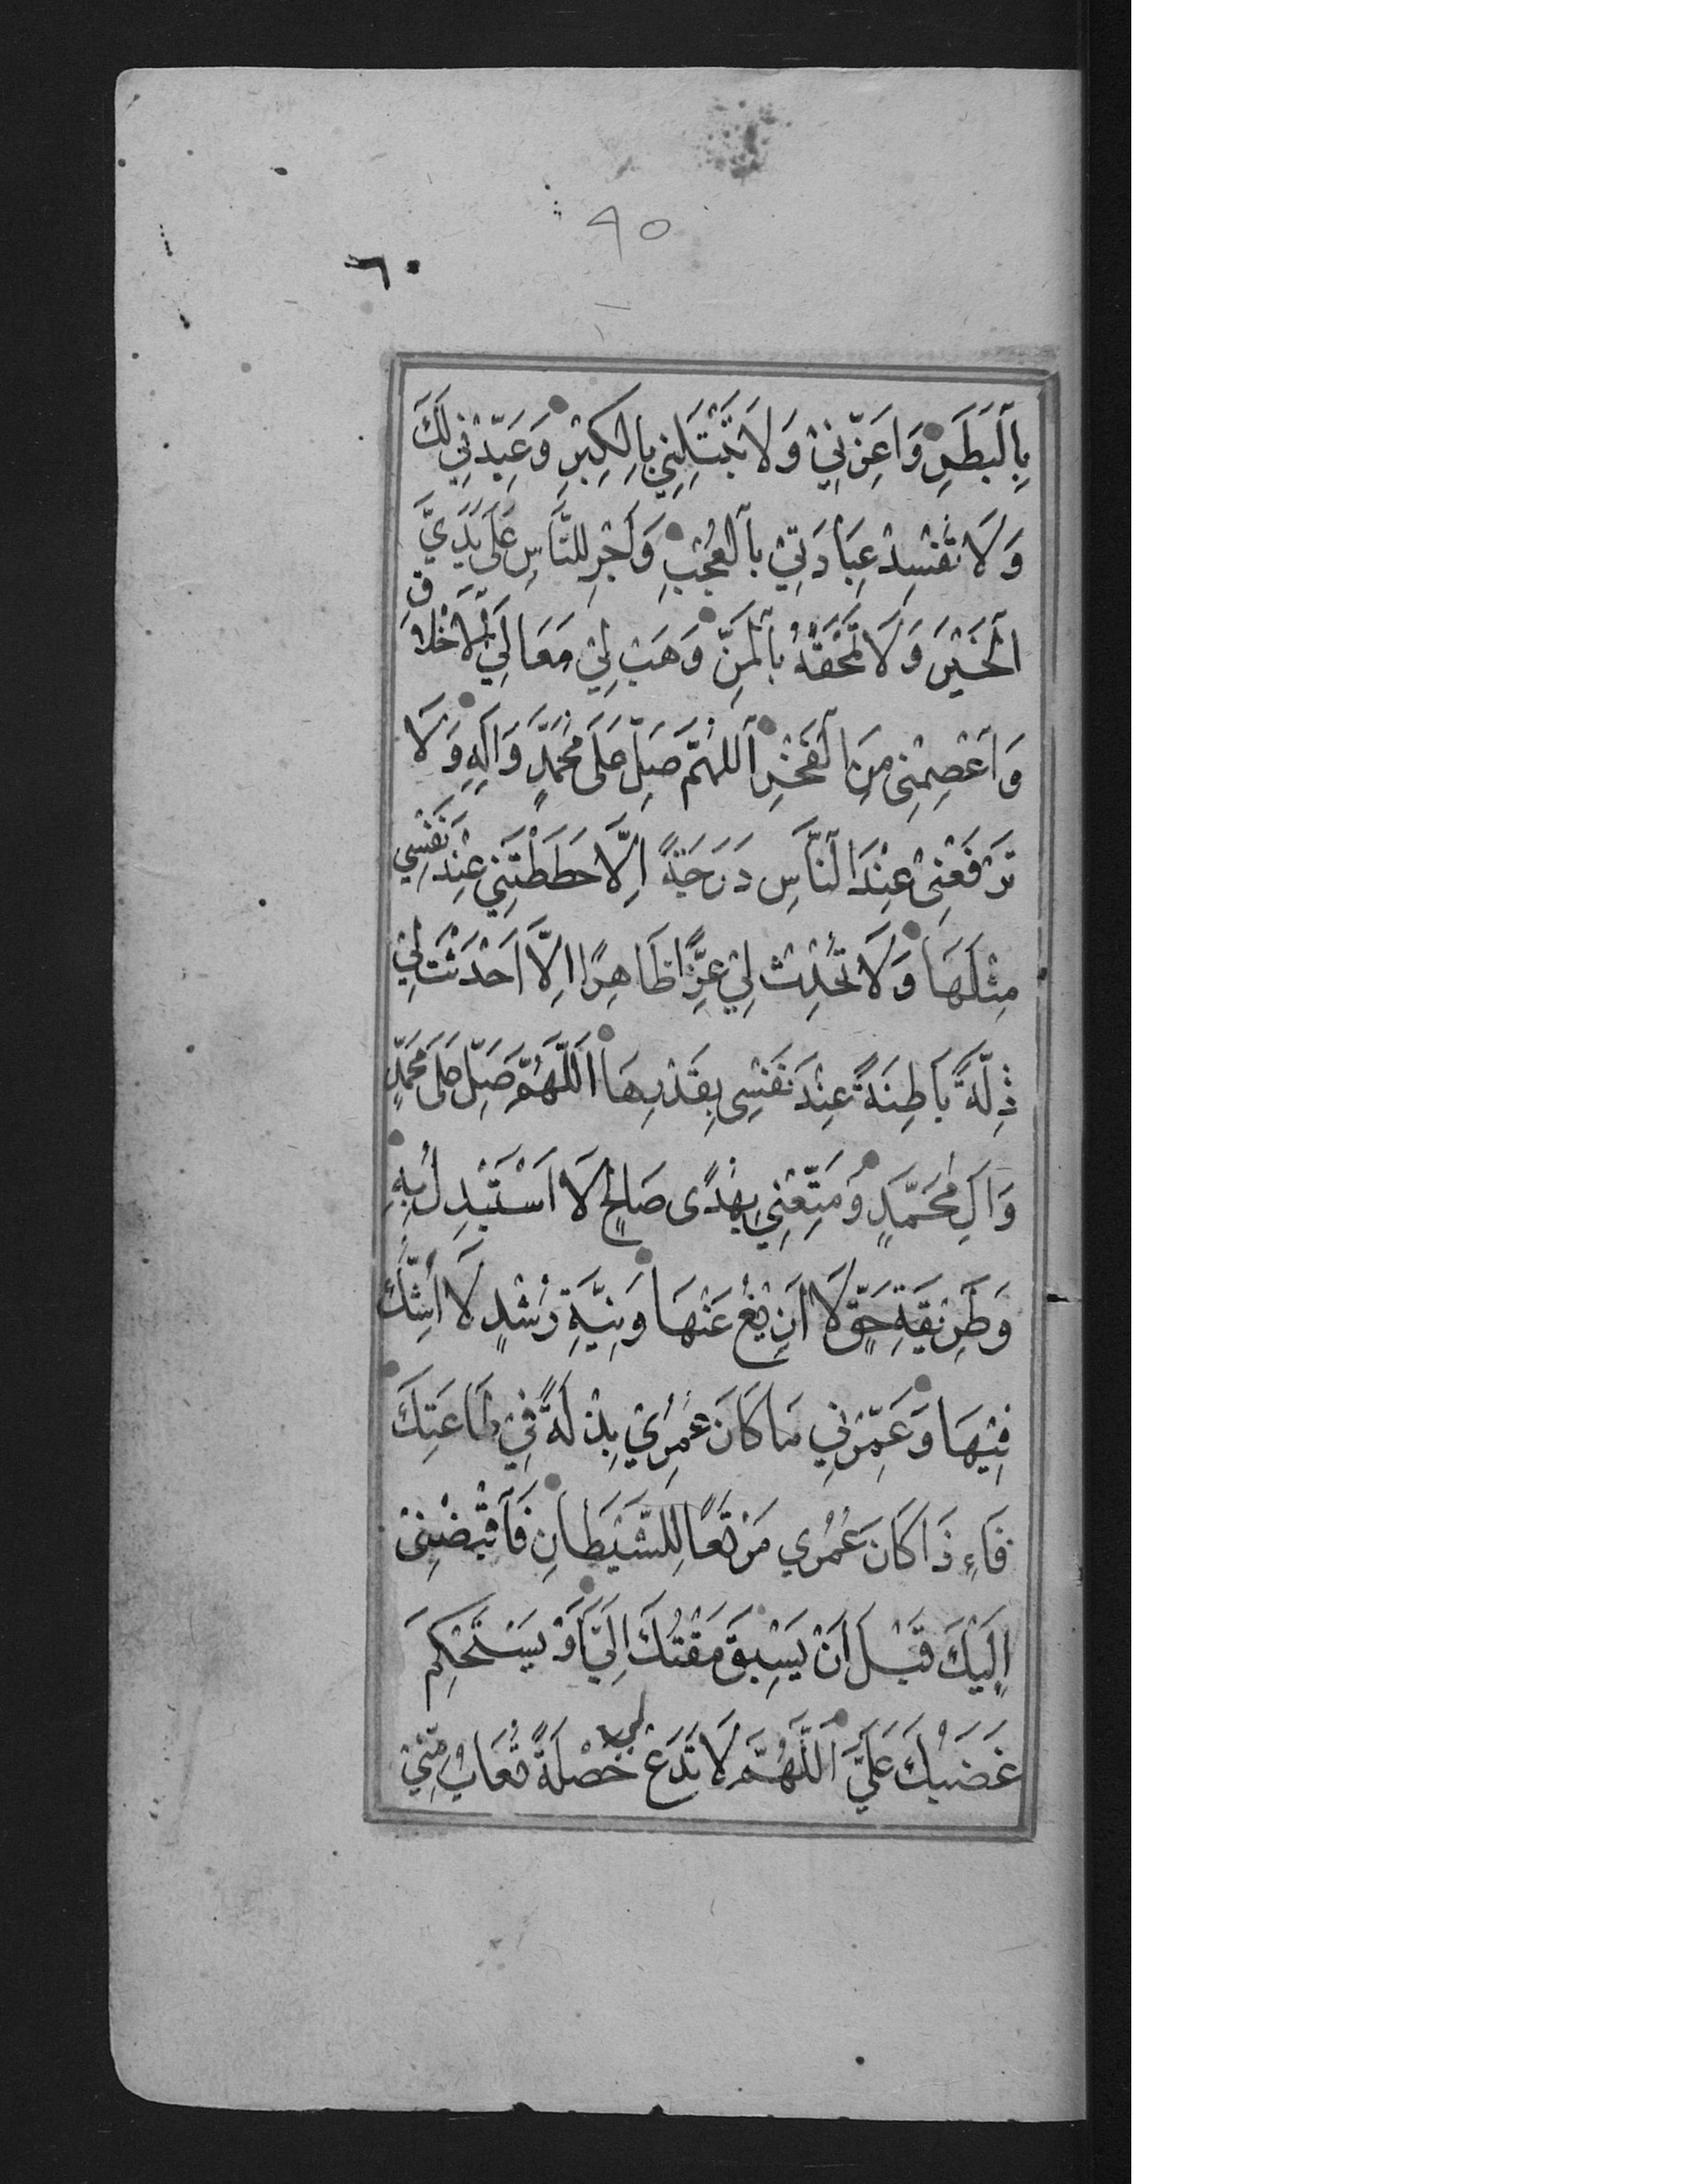 ٩٥
٦٠
بِالْبَطَرِ وَاَعِزَّنِيْ وَلَا تَبْتَلِيَنِّي بِالْكِبْرِ وَعَبِّدْنِي لَكَ
وَلَا تُفْسِدْ عِبَادَتِيْ بِالْعُجْبِ وَاَجْرِ لِلنَّاسِ عَلَى يَدَيَّ
الْخَيْرَ وَلَا تَمْحَقْهُ بِالْمَنِّ وَهَبْ لِيْ مَعَالِيَ الْاَخْلَاقِ
وَاعْصِمْنِى مِنَ الْفَخْرِ اَللّٰهُمَّ صَلِّ عَلَى مُحَمَّدٍ وَآلِهِ وَلَا
تَرْفَعْنِىْ عِنْدَ النَّاسِ دَرَجَةً اِلَّا حَطَطْتَنِي عِنْدَ نَفْسِي
مِثْلَهَا وَلَا تُحْدِثْ لِيْ عِزًّا ظَاهِرًا اِلَّا اَحْدَثْتَ لِيْ
ذِلَّةً بَاطِنَةً عِنْدَ نَفْسِى بِقَدْرِهَا اَللّٰهُمَّ صَلِّ عَلَى مُحَمَّدٍ
وَآلِ مُحَمَّدٍ وَمَتِّعْنِي بِهُدًى صَالِحٍ لَا اَسْتَبْدِلُ بِهِ
وَطَرِيْقَةِ حَقٍّ لَا اَزِيْغُ عَنْهَا وَنِيَّةِ رُشْدٍ لَا اَشُكُّ
فِيْهَا وَعَمِّرْنِي مَا كَانَ عُمُرِيْ بِذْلَةً فِيْ طَاعَتِكَ
فَاِءذَا كَانَ عُمُرِي مَرْتَعًا لِلشَّيْطَانِ فَاقْبِضْنِىْ
اِلَيْكَ قَبْلَ اَنْ يَسْبِقَ مَقْتُكَ اِلَيَّ اَوْ يَسْتَحْكِمَ
غَضَبُكَ عَلَيَّ اَللّٰهُمَّ لَا تَدَعْ لي خَصْلَةً تُعَابُ مِنِّيْ